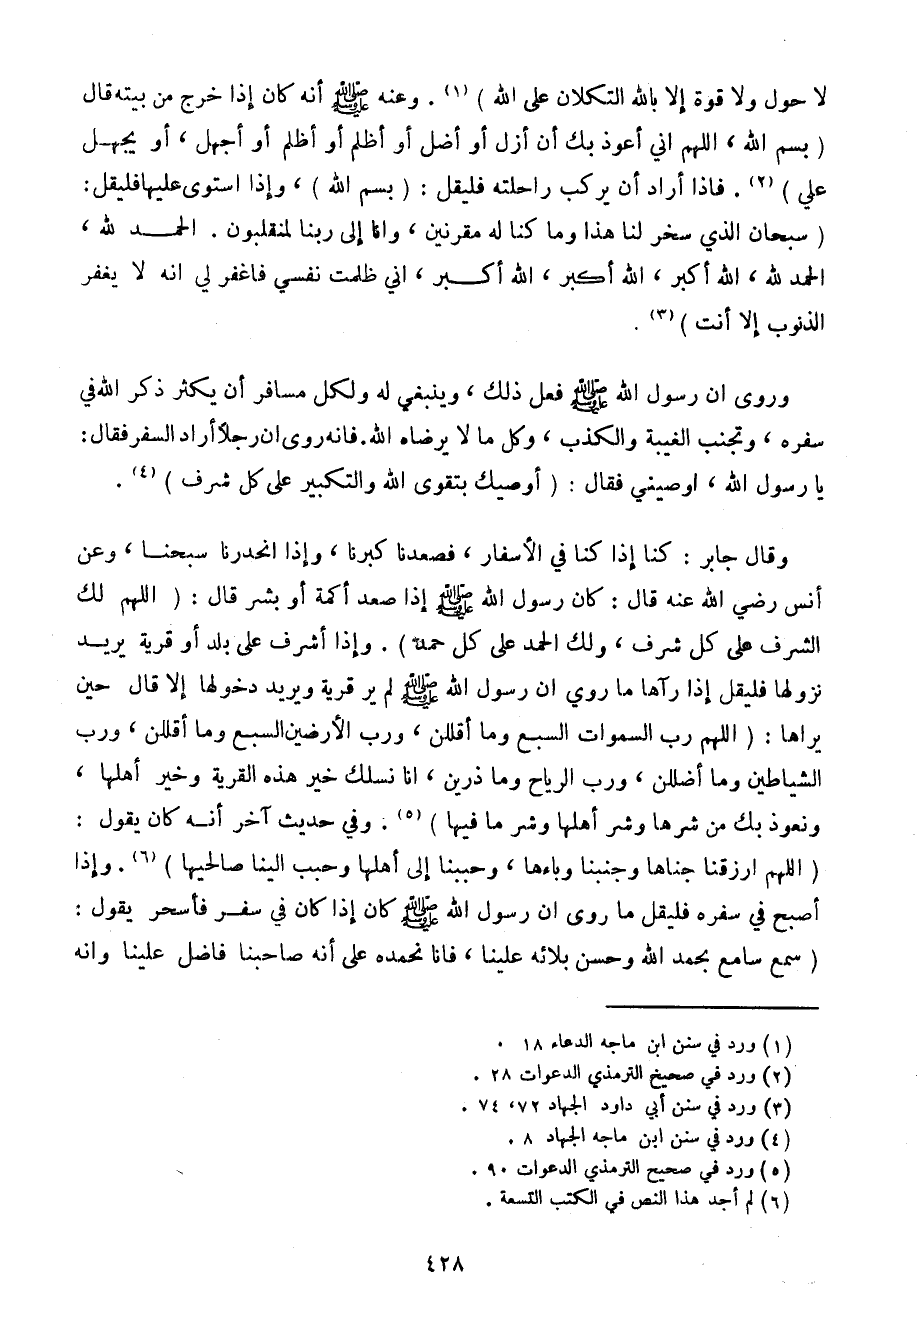 لا حول ولا قوة إلا بالله التكلان على الله ) (١) . وعنه ﷺ أنه كان إذا خرج من بيته قال
( بسم الله ، اللهم اني أعوذ بك أن أزل أو أضل أو أظلم أو أظلم أو أجهل ، أو يجهل
علي ) (٢) . فاذا أراد أن يركب راحلته فليقل : ( بسم الله ) ، وإذا استوى عليها فليقل :
( سبحان الذي سخر لنا هذا وما كنا له مقرنين ، وانا إلى ربنا لمنقلبون . الحمد لله ،
الحمد لله ، الله أكبر ، الله أكبر ، الله أكبر ، اني ظلمت نفسي فاغفر لي انه لا يغفر
الذنوب إلا أنت ) (٣) .
وروى ان رسول الله ﷺ فعل ذلك ، وينبغي له ولكل مسافر أن يكثر ذكر الله في
سفره ، وتجنب الغيبة والكذب ، وكل ما لا يرضاه الله. فانه روى ان رجلا أراد السفر فقال :
يا رسول الله ، اوصيني فقال : ( أوصيك بتقوى الله والتكبير على كل شرف ) (٤) .
وقال جابر : كنا إذا كنا في الأسفار ، فصعدنا كبرنا ، وإذا انحدرنا سبحنا ، وعن
أنس رضي الله عنه قال : كان رسول الله ﷺ إذا صعد أكمة أو بشر قال : ( اللهم لك
الشرف على كل شرف ، ولك الحمد على كل حمد ) . وإذا أشرف على بلد أو قرية يريد
نزولها فليقل إذا رآها ما روي ان رسول الله ﷺ لم ير قرية ويريد دخولها إلا قال حين
يراها : ( اللهم رب السموات السبع وما أقللن ، ورب الأرضين السبع وما أقللن ، ورب
الشياطين وما أضللن ، ورب الرياح وما ذرين ، انا نسلك خير هذه القرية وخير أهلها ،
ونعوذ بك من شرها وشر أهلها وشر ما فيها ) (٥) . وفي حديث آخر أنه كان يقول :
( اللهم ارزقنا جناها وجنبنا وباءها ، وحببنا إلى أهلها وحبب الينا صالحيها ) (٦) . وإذا
أصبح في سفره فليقل ما روى ان رسول الله ﷺ كان إذا كان في سفر فأسحر يقول :
( سمع سامع بحمد الله وحسن بلائه علينا ، فانا نحمده على أنه صاحبنا فاضل علينا وانه
(١) ورد في سنن ابن ماجه الدعاء ١٨ .
(٢) ورد في صحيح الترمذي الدعوات ٢٨ .
(٣) ورد في سنن أبي داود الجهاد ٧٢، ٧٤ .
(٤) ورد في سنن ابن ماجه الجهاد ٨ .
(٥) ورد في صحيح الترمذي الدعوات ٩٠ .
(٦) لم أجد هذا النص في الكتب التسعة .
٤٢٨